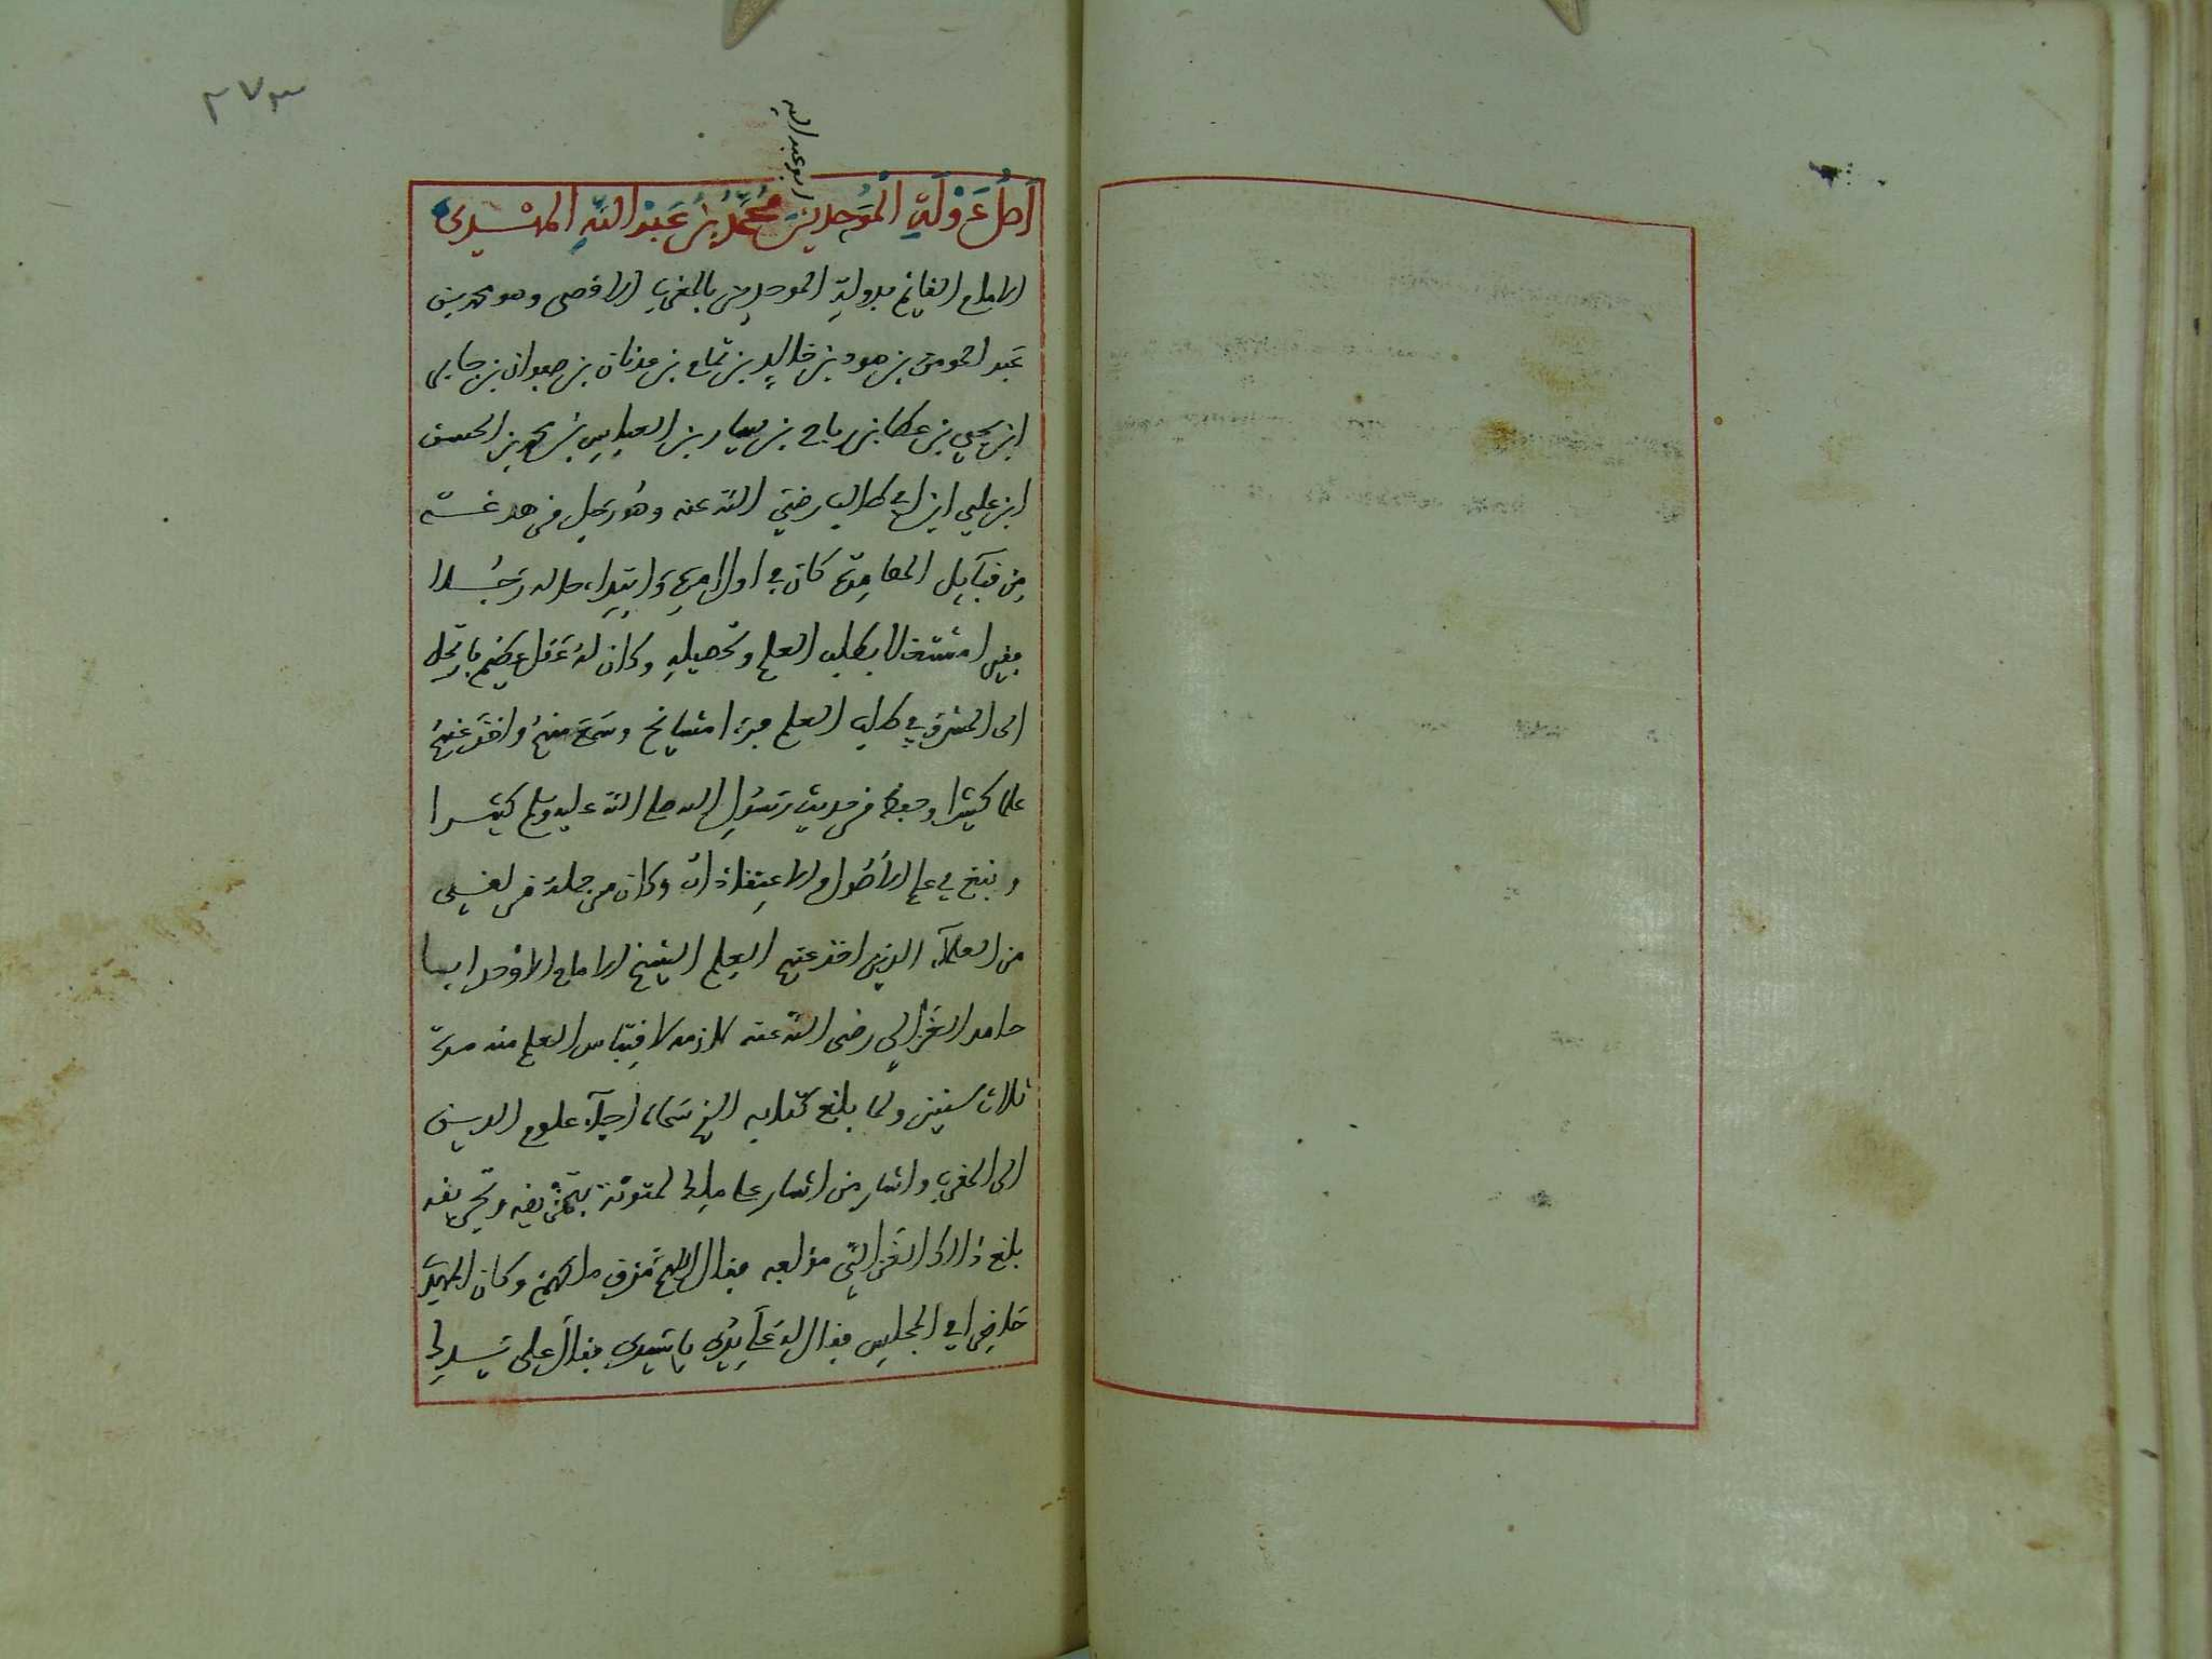 ٢٧٣
ابو عبد الله
أصل دَوْلَةِ الْمُوَحِّدِينَ مُحَمَّدُ بْنُ عَبْدِ اللَّهِ المهْدى
الامام القايم بدولةِ الموحدين بالمغرب الاقصى وهو محمد بن
عبد المومن بن هود بن خالد بن تمام بن عدنان بن صفوان بن جابر
ابن يحيى بن عطا بن رباح بن يسار بن العباس بن محمد بن الحسن
ابن علي ابن ابي طالب رضيَ الله عنه وهُو رجل من هرغة
مِن قبآيل المصامدة كان في اول امرهِ وَابتدا، حاله رَجُلا
فقيرا مشتغلا بطلب العلم وتحصيلهِ وكان لهُ عَقل عظيم فارتحل
الى المشرق في طلب العلم فرءا مشايخ وسَمَعَ منهمُ واخذ عَنهمُ
علما كثيرا وحفظ من حديث رَسُولِ الله صلى الله عليه وسلم كثيرا
ونبغ في علم الأصُول والاعتِقاذات وكان من جملة من لقي
من العلمآء الذين اخذ عنهم العِلم الشيخ الامام الاوْحد ابا
حامد الغَزالي رضى الله عنه لازمه لاقتِباس العلم منه مدة
ثلاث سنين ولما بلغ كتابه الذي سَماه احيآء علوم الدين
الى المغرب واشار من اشار على ملك لمتونة بتمزيقه وتحريقه
بلغ ذالك الغَزالي مؤلفه فقال اللهمَّ مزق ملكهمْ وكان المهدي
حَاضِرا في المجلِس فقال له عَلَى يَدِي يا سَيدي فقالَ على يَدِيك